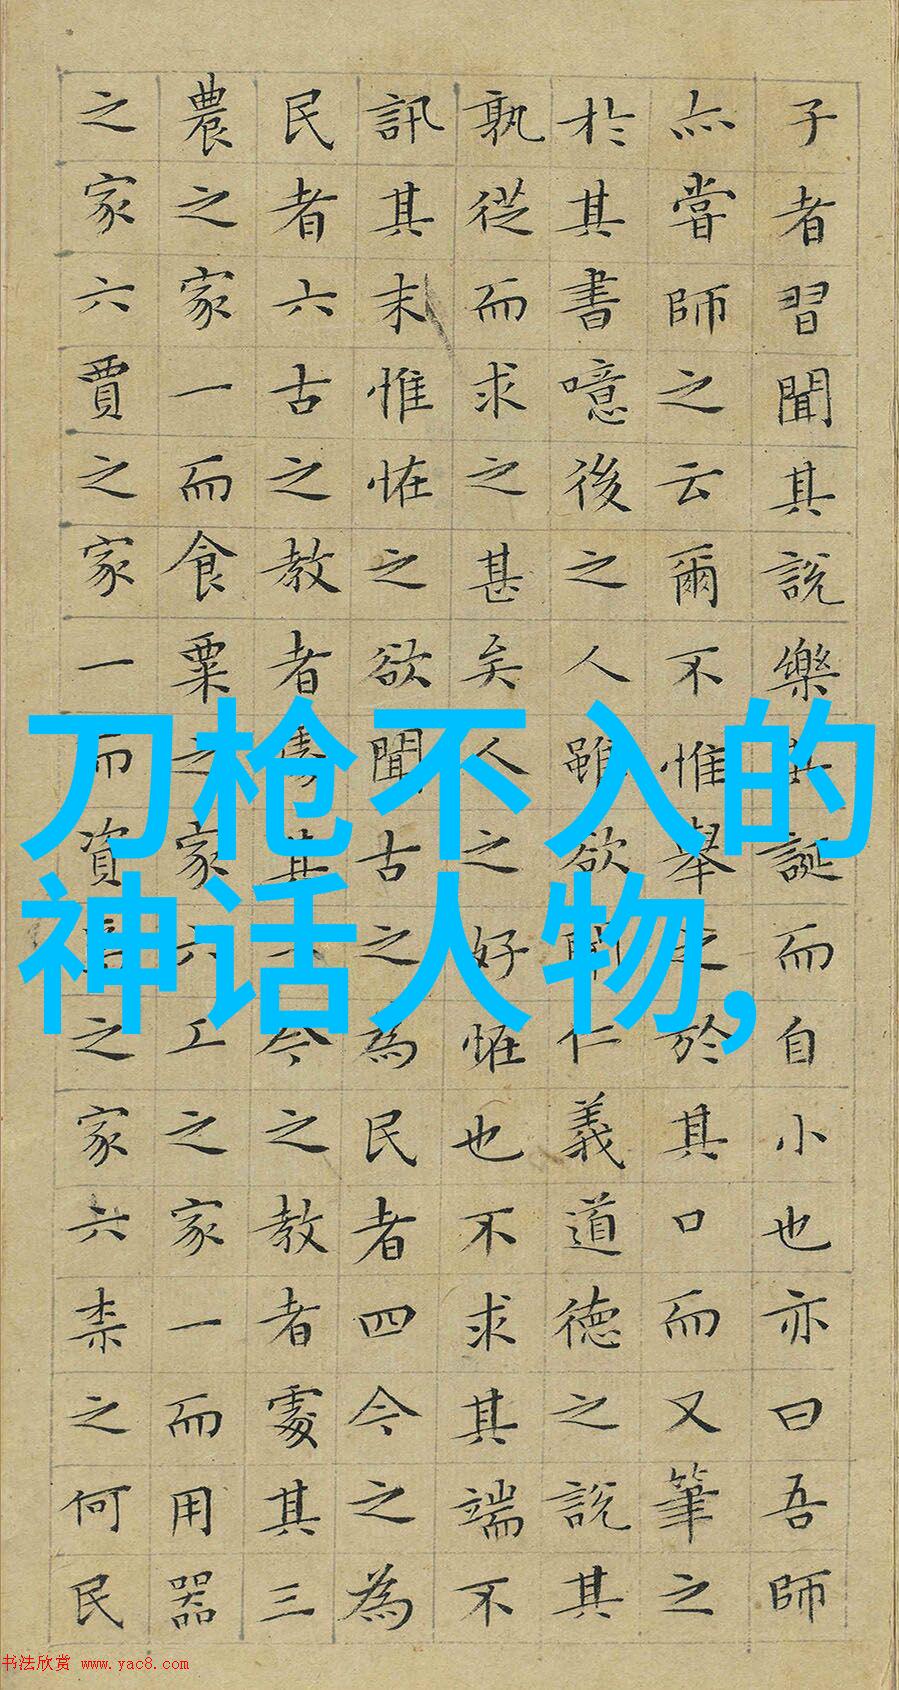 子者習聞其說樂其誕而自小也亦曰吾師
亦嘗師之云爾不惟舉之於其口而又筆之
於其書噫後之人雖欲聞仁義道德之說其
孰從而求之甚矣人之好怪也不求其端不
訊其末惟怪之欲聞古之為民者四今之為
民者六古之教者處其一今之教者處其三
農之家一而食粟之家六工之家一而用器
之家六賈之家一而資焉之家六柰之何民
刀枪不入的
神话人物,
书法欣赏 www.yac8.com